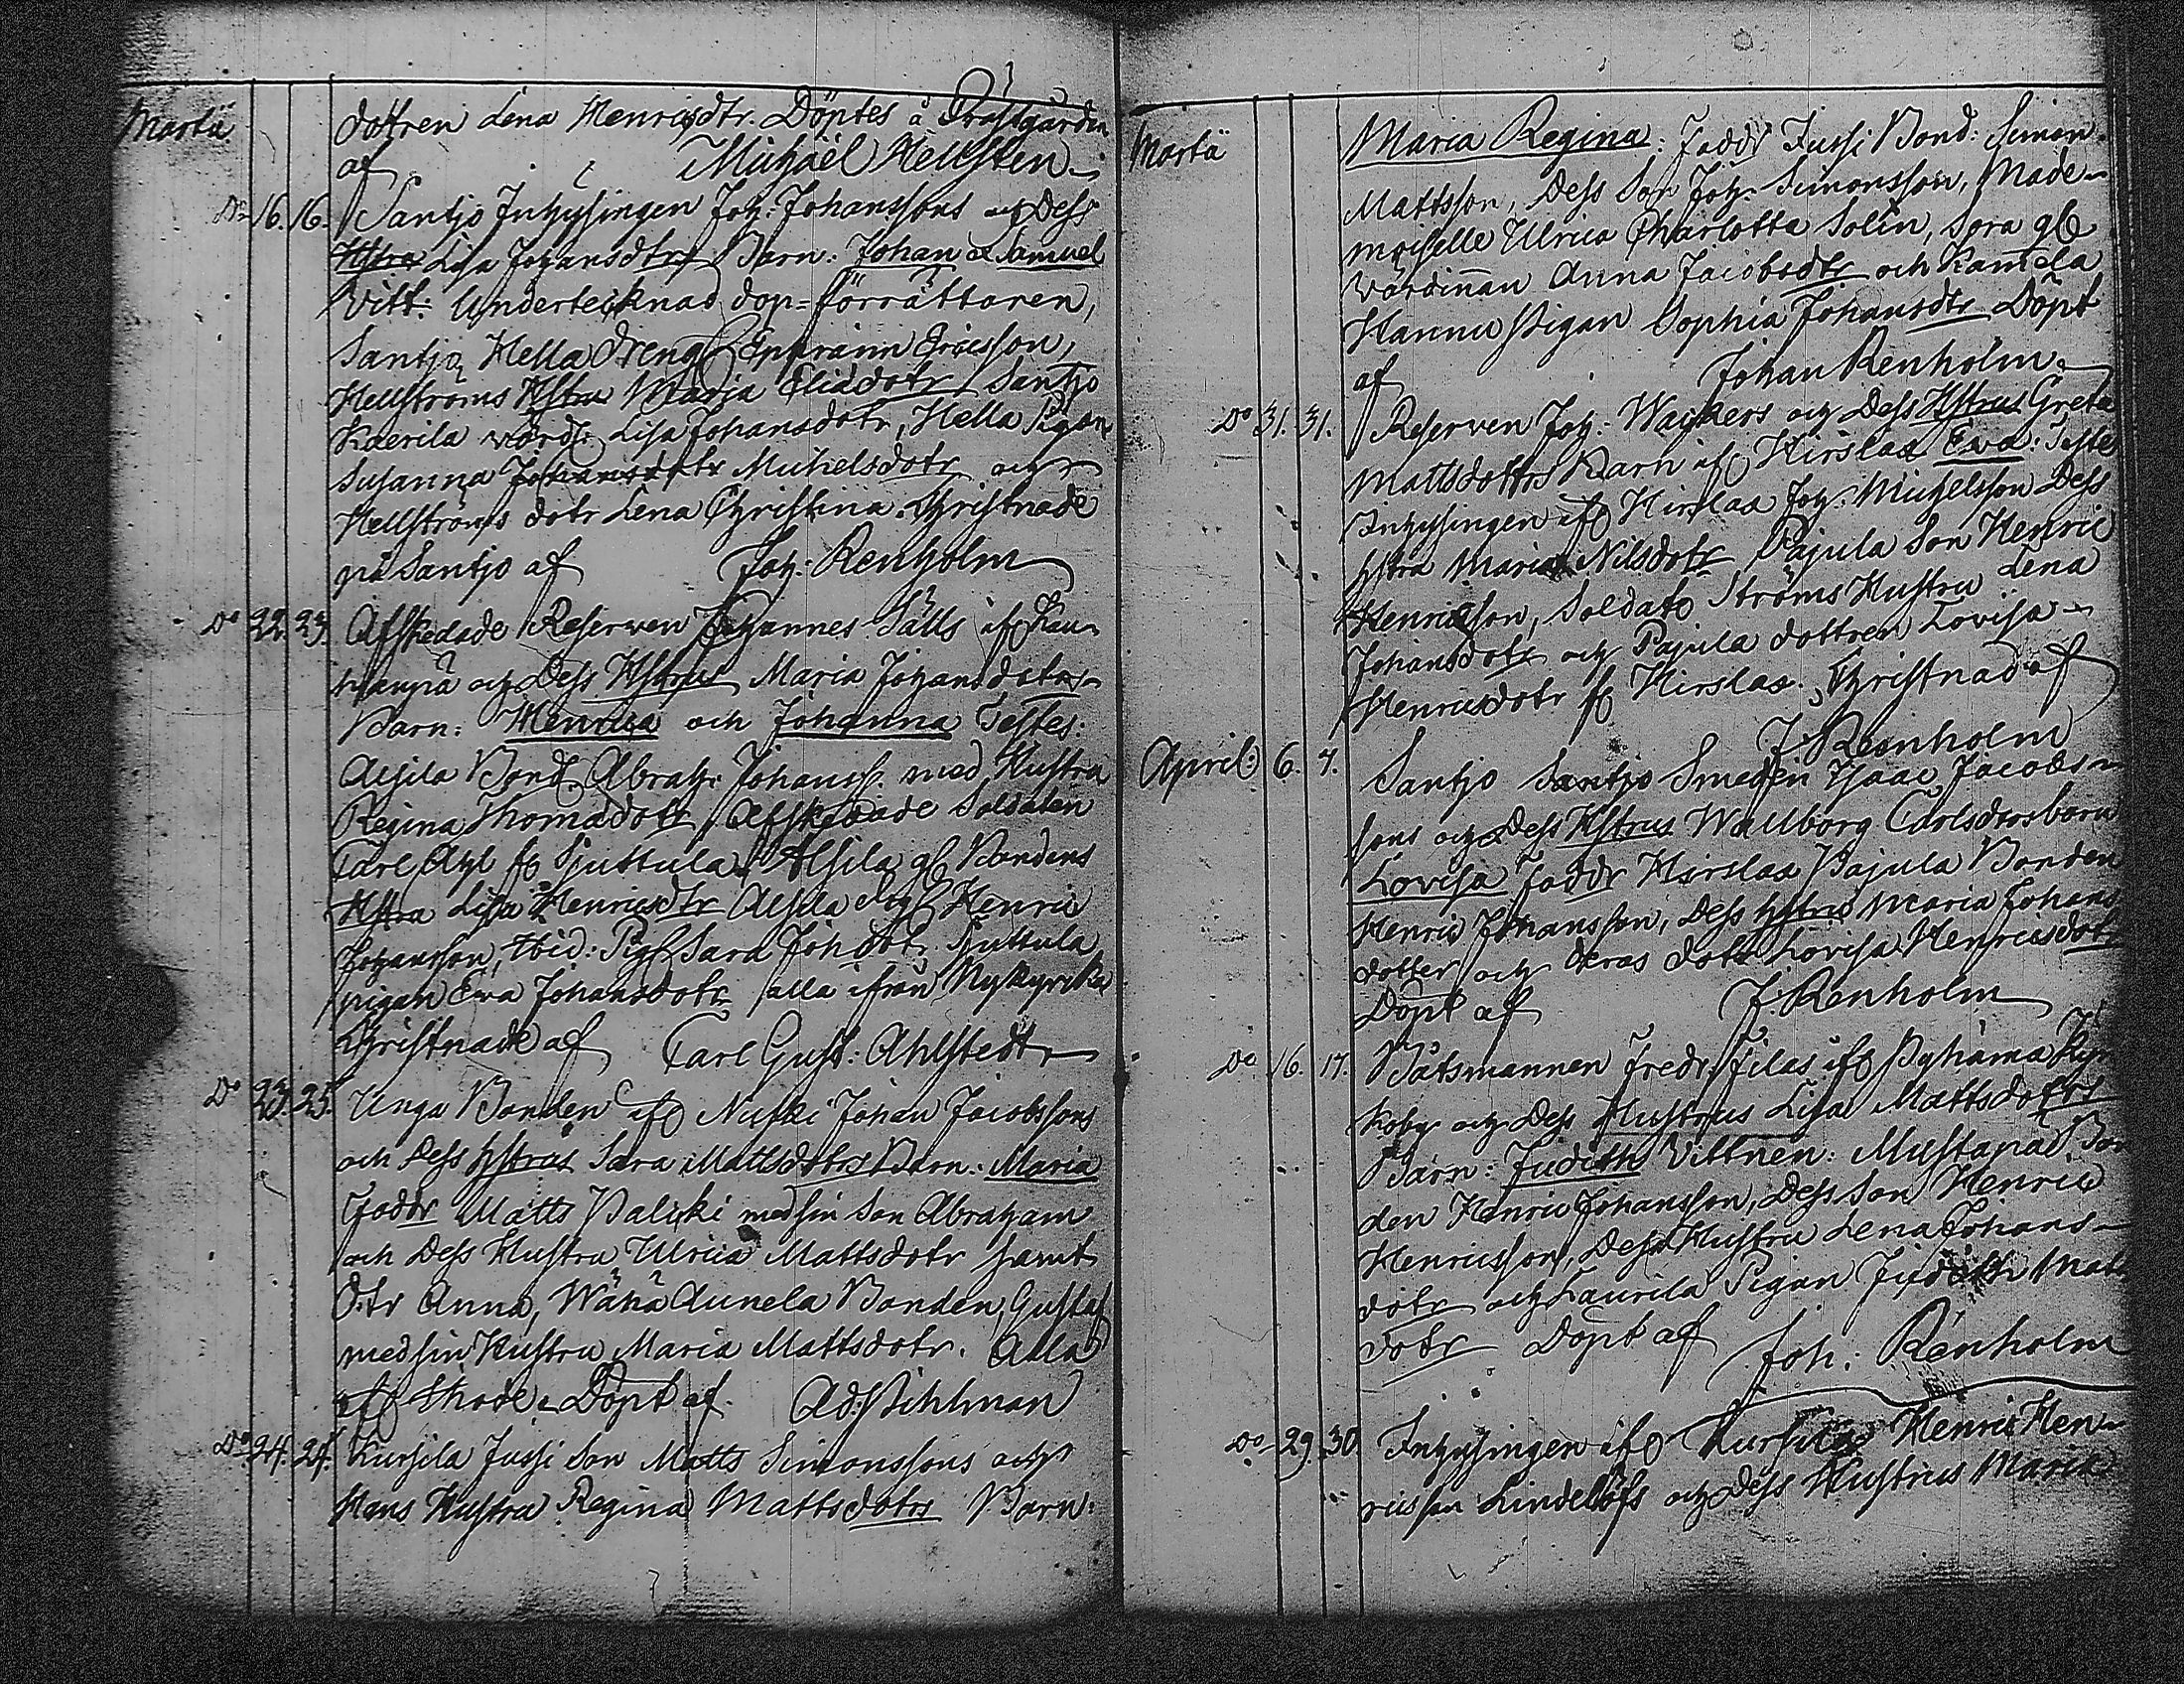 Martii
dottren Lena Henricsdtr. Döptes å Prästgården
af Michaël Hellsten.
Do 16. 16. Santjo Inhysingen Joh: Johanssons och Dess
Hstru Lisa Johansdtrs Barn: Johan & Samuel
Vitt: Undertecknad dop-förrättaren,
Santjo Hella Dreng Ephraim Ericsson,
Hellströms Hstru Maria Eliædotr Santjo
Kaerila värds: Lisa Johansdotr, Hella Pigan
Susanna Johansdotr Michelsdotr och
Hellströms dotr Lena Christina. Christnade
på Santjo af Joh: Renholm
Do 22. 23. Afskedade Reserven Johannes Sälls if
och Dess Hstrus Maria Johansdotrs
Barn: Henrica och Johanna Testes:
Bond. Abrah: Johanss. med Hustru
Regina Thomædotr, Afskedade Soldaten
Carl if Bondens
Hstru Lisa Henricsdtr Henric
Johansson, Ibid: Pig. Sara Johdotr
pigan Eva Johansdotr alla ifrån Nykyrka
Christnade af Carl Gust: Ahlstedt
Do 23. 25. Unga Bonden if Johan Jacobssons
och Dess Hstrus Sara Mattsdotrs Barn: Maria
Faddr Matts med sin Son Abraham
och Dess Hustru Ulrica Mattsdotr samt
Dotr Anna, Wähä Aunela Bonden, Gustaf
med sin Hustru Maria Mattsdotr. Alla
Döpt af. Ad: Pihlman
Do 24. 24. Kursila Jussi Son Matts Simonssons och
Hans Hustru Regina Mattsdotrs Barn:
Martii
Maria Regina: Faddr Jussi Bond: Simon
Mattsson, Dess Son Joh: Simonsson, Made-
moiselle Ulrica Charlotta Solin, Sora gl
värdinnan Anna Jacobsdtr och Kamela
Hannu Pigan Sophia Johansdtr Döpt
af Johan Renholm.
Do 31. 31. Reserven Joh: Wackers och Dess Hstrus Greta
Mattsdottrs Barn if Hirslax Eva: Testes
Inhysingen if Hirslax Joh: Michelsson Dess
Hstru Maria Nilsdotr Pajula Son Henric
Henricsson, Soldat Ströms Hustru Lena
Johansdotr och Pajula dottren Lovisa
Henricsdotr if Hirslax. Christnad af
J Renholm
April: 6. 7. Santjo Santjo Smeden Isaac Jacobs-
sons och Dess Hstrus Wallborg Carlsdtrs barn
Lovisa Faddr Hirslax Pajula Bonden
Henric Johansson, Dess hstru Maria Johans
dotter och deras dotr Lovisa Henricsdotr
Döpt af J: Renholm
Do 16. 17. Båtsmannen Fredr: Filas if Pyhämä
koby och Dess Hustrus Lisa Mattsdotrs
Barn: Judith Vittnen: Mustapää Bon
den Henric Johansson, Dess Son Henric
Henricsson, Dess Hustru Lena Johans-
dotr och Laurila Pigan Judith Matts
dotr Döpt af Joh: Renholm
Do 29. 30. Inhysingen if Kursila Henric Hen-
ricsson Lindelöfs och Dess Hustrus Maria